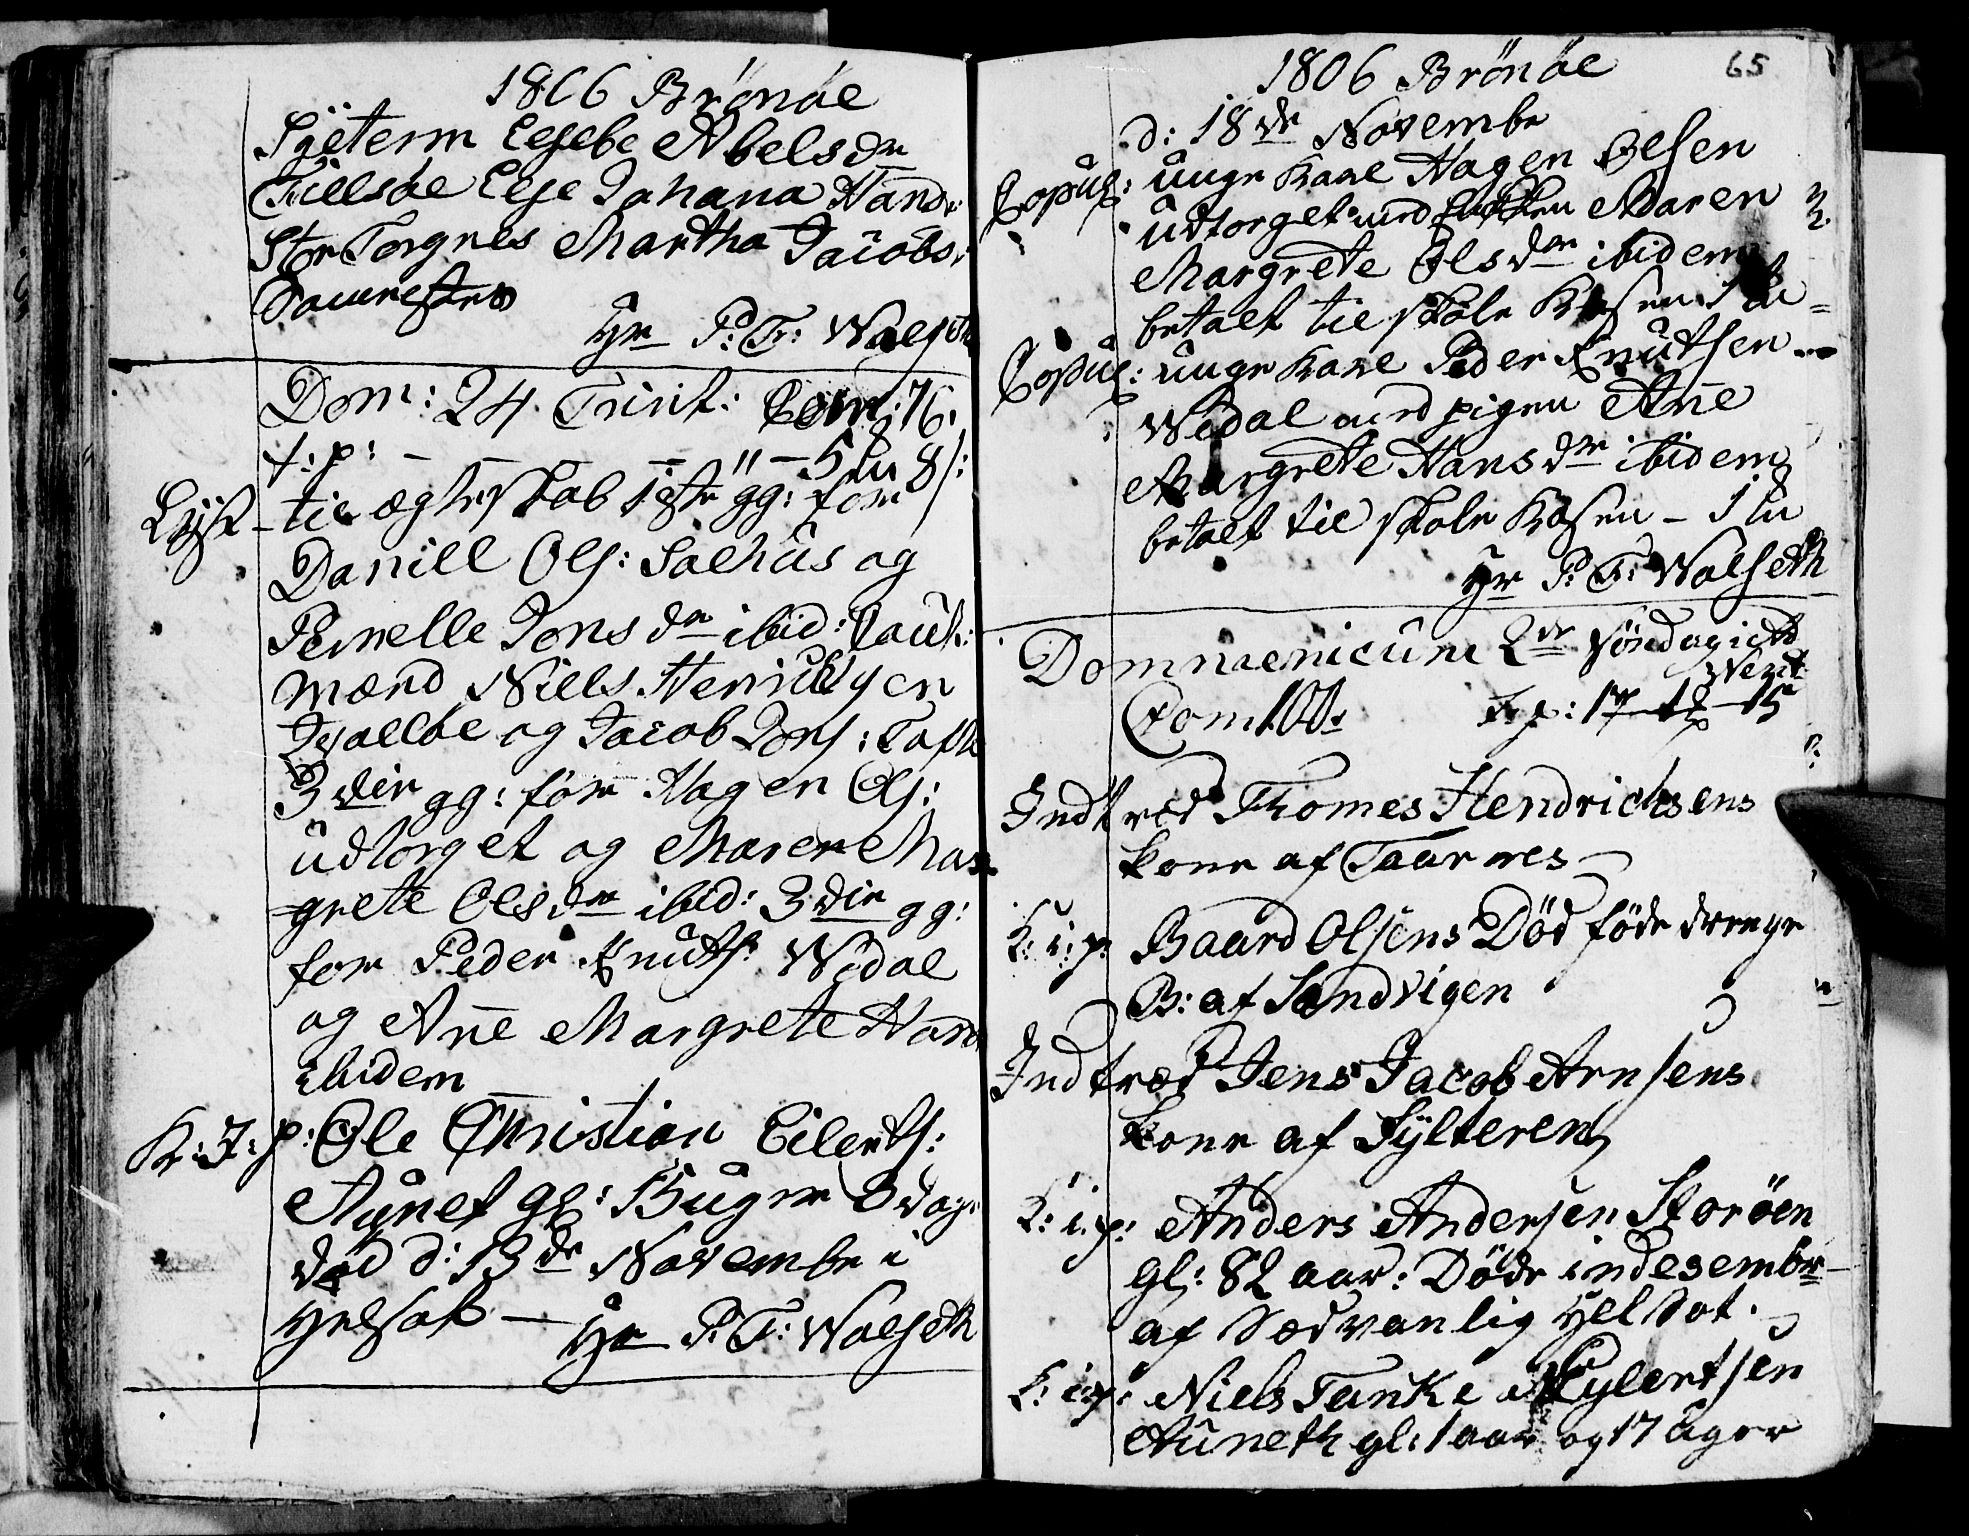 1806 Brönöe
Sÿeterm Elsebe Abelsdr
Tiellsöe Else Johana Hansdr
Stor Torgnes Martha Jacobs:
Saurestrøs
Hr P: T: Walseth
Dom: 24 Trinit: Com: 76.
t: p: — — — " — 5 lu 8 s:
Lÿst — til ægteskab 1ste gg: for
Daniell Ols: Salhus og
Pernelle Jonsdr ibid: Caut:
mænd Niells Henrichsen
og Jacob Jons: Toft
3die gg: for Hagen Ols:
udtorget og Maren Mar
grete Olsdr ibid: 3die gg:
for Peder Knuts: Wedal
og Ane Margrete Hans
ibidem
K: J: p: Ole Christian Eilerts:
Aunet gl: 3 uger 3 dage
død d: 13de Novembr i
Helsot — Hr P: T: Walseth
1806 Brönöe 65
d: 18de Novembr
Copul: unge Karl Hagen Olsen
udtorget med Maren
Margrete Olsdr ibidem
betalt til skole Kasen 1 lu
Copul: unge Karl Peder Knutsen
Wedal med pigen Ane
Margrete Hansdr ibidem
betalt til skole Kasen — 1 lu
Hr P: T: Walseth
Domnaenicum 2de Söndag i Ad
Vent
Com 100. t: p: 17
Indtræd Thomes Hendrichsens
kone af Taarnes
K: i: p: Baard Olsens Död föde drenge
B: af Sandvigen
Indtræd Jens Jacob Arnsens
kone af Sÿlteren
K: i: p: Anders Andersen Storöen
gl: 82 aar: Döde in desembr
af Sædvanlig Hel Sot.
K: i: p: Niels Tanke Eylertsen
Auneth gl: 1 aar og 17 uger